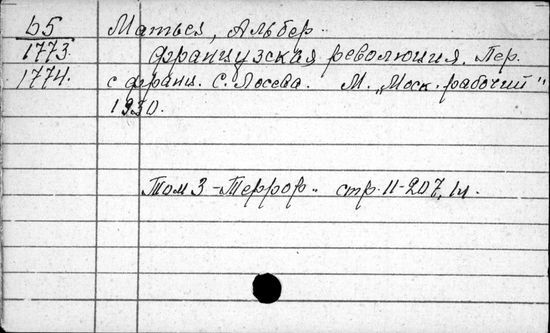 b5 Матьез, Альбер.
1773. Французская революция. Пер.
1774. с франц. С. Лосева. М. „Моск. рабочий"
1930.
Том 3 - Террор.. стр. II-207, 1 л.